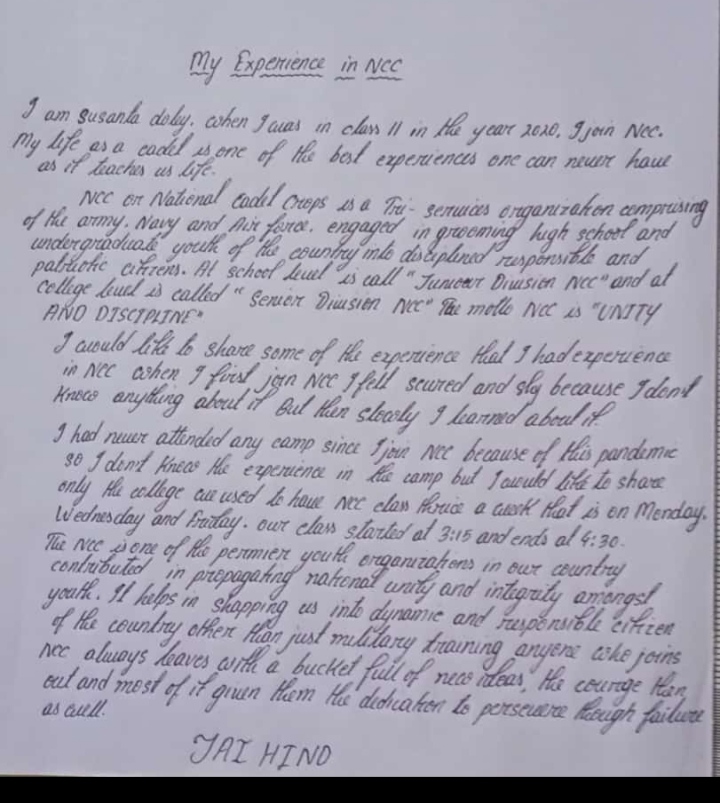 My Experience in NCC
I am Susanla doley. when I was in class 11 in the year 2020, I join Ncc.
My life as a cadet is one of the best experiences one can never have
as it teaches us life.
NCC or National Cadet Crops is a Tri- services organization comprising
of the army, Navy and Air force, engaged in grooming high school and
undergraduate youth of the country into disciplined responsible and
patriotic citizens. At school level is call "Juniour Division Ncc" and at
college level is called "Senior Division NCC" The motto NCC is "UNITY
AND DISCIPLINE"
I would like to share some of the experience that I had experience
in NCC when I first join NCC I fell scured and shy because I don't
know anything about it But then slowly I learned about it.
I had never attended any camp since I join NCC because of this pandemic
so I don't know the experience in the camp but I would like to share
only the college we used to have NCC class thrice a week that is on Monday,
Wednesday and Friday. our class started at 3:15 and ends at 4:30.
The NCC is one of the permier youth organizations in our country
contributed in propagating national unity and integrity amongst
youth. It helps in shapping us into dynamic and responsible citizen
of the country other than just military training anyone who joins
NCC always leaves with a bucket full of new ideas, the courge then
out and most of it given them the dedication to persevere though failure
as well.
JAI HIND